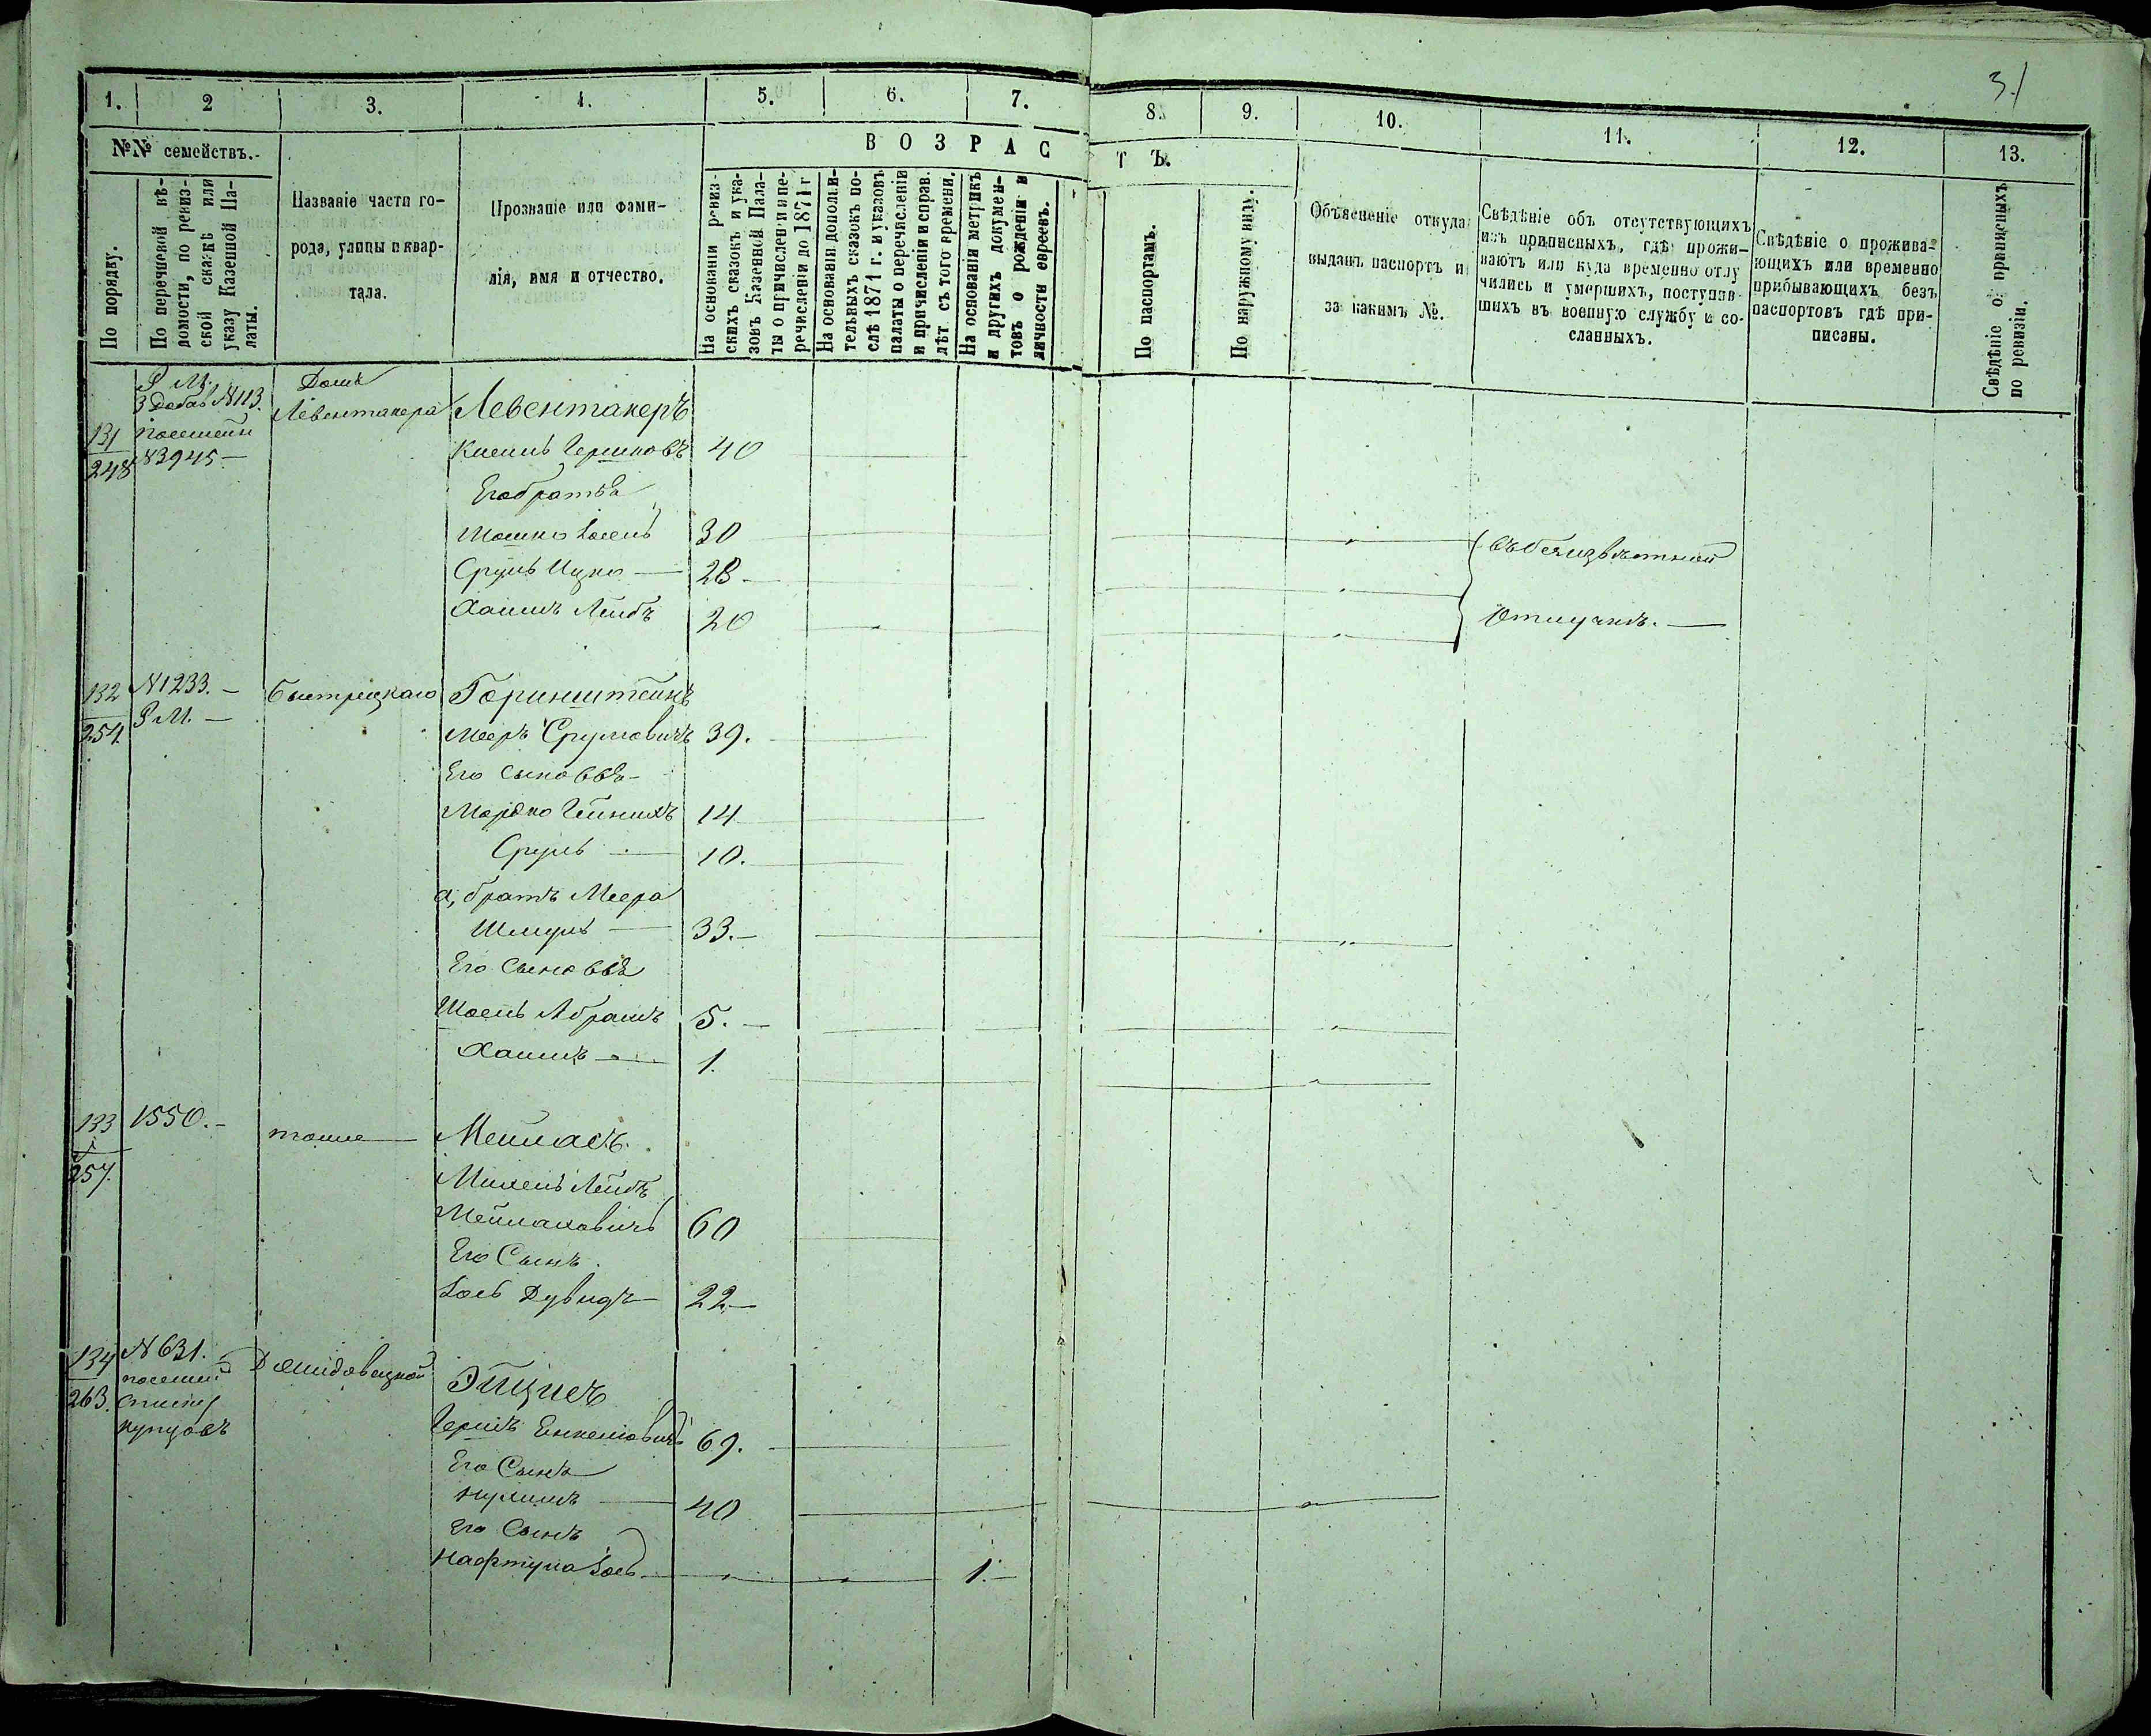 31
1. 2 3. 4. 5. 6. 7. 8. 9. 10. 11. 12. 13.
№№ семействъ.
ВОЗРАСТЪ.
По порядку.
По перечневой вѣ-
домости, по ревиз-
ской сказкѣ или
указу Казенной Па-
латы.
Названіе части го-
рода, улицы и квар-
тала.
Прозваніе или фами-
лія, имя и отчество.
На основаніи ревиз-
скихъ сказокъ и ука-
зовъ Казенной Пала-
ты о причисленіи и пе-
речисленіи до 1871 г
На основаніи дополни-
тельныхъ сказокъ по-
слѣ 1871 г. и указовъ
палаты о перечисленіи
и причисленіи и справ.
лѣт съ того времени.
На основаніи метрикъ
и другихъ докумен-
товъ о рожденіи и
личности евреевъ.
По паспортамъ.
По наружному виду.
Объясненіе откуда
выданъ паспортъ и
за какимъ №.
Свѣдѣніе объ отсутствующихъ
изъ приписныхъ, гдѣ прожи-
ваютъ или куда временно отлу
чились и умершихъ, поступив-
шихъ въ военную службу и со-
сланныхъ.
Свѣдѣніе о прожива-
ющихъ или временно
прибывающихъ безъ
паспортовъ гдѣ при-
писаны.
Свѣдѣніе о приписныхъ
по ревизіи.
Р М. Домъ
3 Добав №113. Левентакера Левентакеръ
131
248 №3945 — Гершковъ 40
Его братья
Мошко Іосель 30
Сруль Ицко — 28 — въ безизвѣстной
Хаимъ Лейбъ 20 отлучкѣ. —
132 №1233. — Быстрецкаго Горинштейнъ
254 Р М. — Мееръ Срулевичъ 39.
Его сыновья
Мордко Гейнихъ 14
Сруль — 10.
а, братъ Меера
Шмуль — 33. —
Его сыновья
Іосель Абрамъ 5. —
Хаимъ — 1.
133 1550. — тоже — Мейлахъ.
257. Михель Лейбъ
Мейлаховичъ 60
Его Сынъ.
Іось Дувидъ — 22. —
134 №631.
263. Эпцнеръ
купцовъ Гершъ Енкелевичъ 69.
Его Сынъ
Нухимъ — 40
Его Сынъ
Нафтула Іось — 1. —